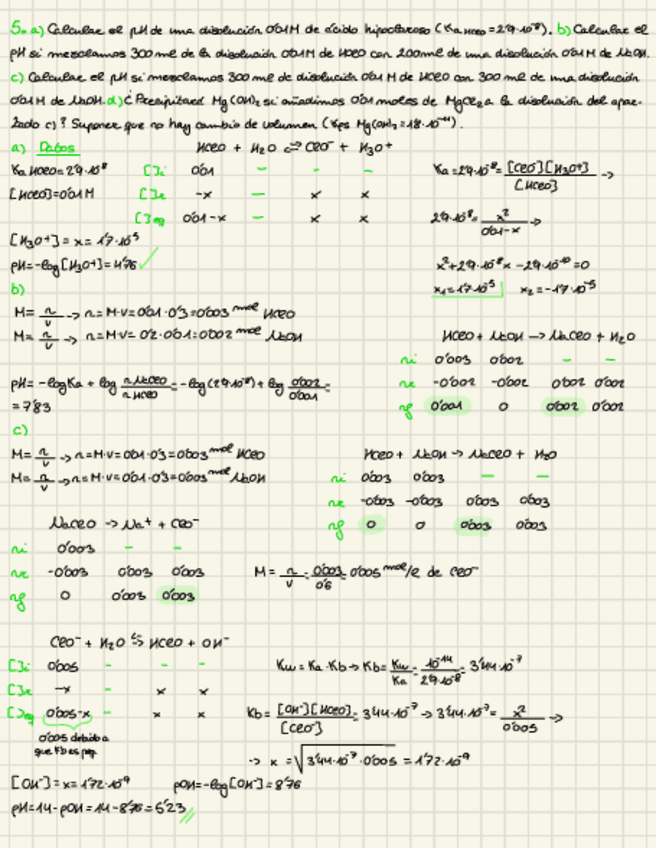 5. a) Calcular el pH de una disolución 0'01M de ácido hipocloroso (Ka HClO = 2'9·10⁻⁸). b) Calcular el
pH si mezclamos 300 ml de la disolución 0'01M de HClO con 200 ml de una disolución 0'01M de NaOH.
c) Calcular el pH si mezclamos 300 ml de disolución 0'01 M de HClO con 300 ml de una disolución
0'01M de NaOH. d) ¿Precipitará Mg(OH)₂ si añadimos 0'01 moles de MgCl₂ a la disolución del apar-
tado c)? Suponer que no hay cambio de volumen (Kps Mg(OH)₂ = 1'8·10⁻¹¹).
a) Datos
HClO + H₂O ⇄ ClO⁻ + H₃O⁺
Ka HClO = 2'9·10⁻⁸
[ ]i 0'01 - - -
Ka = 2'9·10⁻⁸ = [ClO⁻][H₃O⁺] / [HClO] →
[HClO] = 0'01M
[ ]r -x - x x
[ ]eq 0'01-x - x x
2'9·10⁻⁸ = x² / 0'01-x →
[H₃O⁺] = x = 1'7·10⁻⁵
pH = -log[H₃O⁺] = 4'76 ✓
x² + 2'9·10⁻⁸x - 2'9·10⁻¹⁰ = 0
x₁ = 1'7·10⁻⁵ x₂ = -1'7·10⁻⁵
b)
M = n/V → n = M·V = 0'01·0'3 = 0'003 mol HClO
M = n/V → n = M·V = 0'2·0'01 = 0'002 mol NaOH
HClO + NaOH → NaClO + H₂O
ni 0'003 0'002 - -
nr -0'002 -0'002 0'002 0'002
nf 0'001 0 0'002 0'002
pH = -logKa + log n NaClO / n HClO = -log(2'9·10⁻⁸) + log 0'002 / 0'001 =
= 7'83
c)
M = n/V → n = M·V = 0'01·0'3 = 0'003 mol HClO
M = n/V → n = M·V = 0'01·0'3 = 0'003 mol NaOH
HClO + NaOH → NaClO + H₂O
ni 0'003 0'003 - -
nr -0'003 -0'003 0'003 0'003
nf 0 0 0'003 0'003
NaClO → Na⁺ + ClO⁻
ni 0'003 - -
nr -0'003 0'003 0'003
nf 0 0'003 0'003
M = n/V = 0'003 / 0'6 = 0'005 mol/l de ClO⁻
ClO⁻ + H₂O ⇆ HClO + OH⁻
[ ]i 0'005 - - -
[ ]r -x - x x
[ ]eq 0'005-x - x x
0'005 debido a
que Kb es peq.
Kw = Ka·Kb → Kb = Kw/Ka = 10⁻¹⁴ / 2'9·10⁻⁸ = 3'44·10⁻⁷
Kb = [OH⁻][HClO] / [ClO⁻] = 3'44·10⁻⁷ → 3'44·10⁻⁷ = x² / 0'005 →
→ x = √3'44·10⁻⁷·0'005 = 1'72·10⁻⁹
[OH⁻] = x = 1'72·10⁻⁹ pOH = -log[OH⁻] = 8'76
pH = 14 - pOH = 14 - 8'76 = 5'23